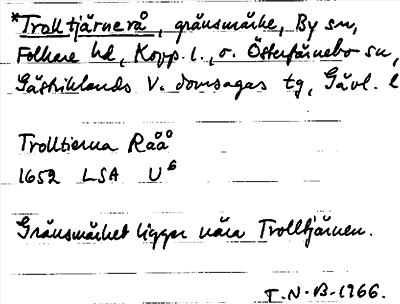 *Trolltjärnerå, gränsmärke, By sn,
Folkare hd, Kopp. l., o. Österfärnebo sn,
Gästriklands V. domsagas tg, Gävl. l
Trolltierna Råå
1652 LSA U6
Gränsmärket ligger nära Trolltjärnen.
I.N.-B. 1966.